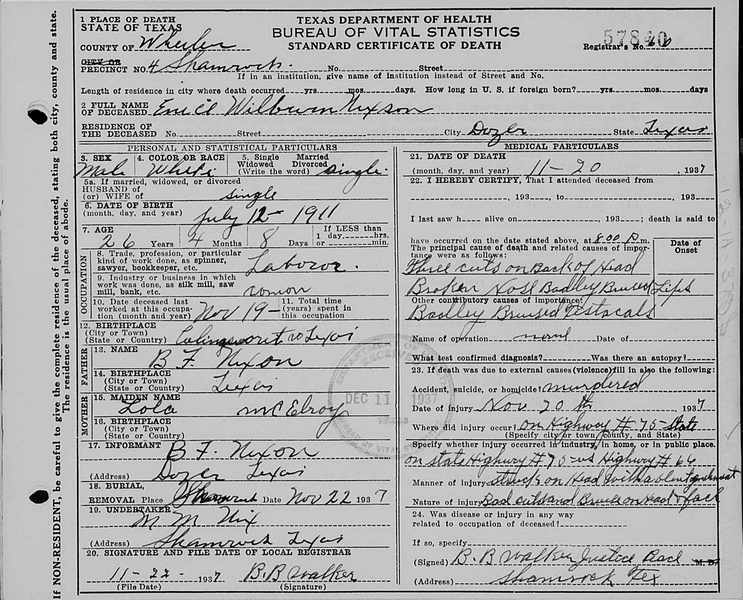 TEXAS DEPARTMENT OF HEALTH
BUREAU OF VITAL STATISTICS
STANDARD CERTIFICATE OF DEATH
1 PLACE OF DEATH
STATE OF TEXAS
COUNTY OF Wheeler
57840
Registrar's No. 66
CITY OR
PRECINCT NO. 4 Shamrock. No. Street
If in an institution, give name of institution instead of Street and No.
Length of residence in city where death occurred yrs. mos. days. How long in U. S. if foreign born? yrs. mos. days
2 FULL NAME
OF DECEASED Wilburn Nixson
RESIDENCE OF
THE DECEASED No. Street City Dozer State Texas
PERSONAL AND STATISTICAL PARTICULARS
3. SEX 4. COLOR OR RACE 5. Single Married
Widowed Divorced
(Write the word) single.
Male White
5a. If married, widowed, or divorced
HUSBAND OF
(or) WIFE of single
6. DATE OF BIRTH
(month, day, and year) July 12 - 1911
7. AGE If LESS than
1 day hrs.
26 Years 4 Months 8 Days or min.
OCCUPATION
8. Trade, profession, or particular
kind of work done, as spinner,
sawyer, bookkeeper, etc. Laboror.
9. Industry or business in which
work was done, as silk mill, saw
mill, bank, etc.
10. Date deceased last 11. Total time
worked at this occupa- (years) spent in
tion (month and year) Nov 19 - this occupation
12. BIRTHPLACE
(City or Town)
(State or Country) Texas
FATHER
13. NAME B. F. Nixon
14. BIRTHPLACE
(City or Town)
(State or Country) Texas
MOTHER
15. MAIDEN NAME
Lola McElroy
16. BIRTHPLACE
(City or Town)
(State or Country)
17. INFORMANT B. F. Nixon
(Address) Dozer Texas
18. BURIAL,
REMOVAL Place Shamrock Date Nov 22 1937
19. UNDERTAKER
M M Nix
(Address) Shamrock Texas
20. SIGNATURE AND FILE DATE OF LOCAL REGISTRAR
11-22- 1937 B.B. Walker
(File Date) (Signature)
MEDICAL PARTICULARS
21. DATE OF DEATH
(month, day, and year) 11-20 , 1937
22. I HEREBY CERTIFY, That I attended deceased from
, 193 , to , 193
I last saw h alive on , 193 ; death is said to
have occurred on the date stated above, at 8:00 P. m.
The principal cause of death and related causes of impor- Date of
tance were as follows: Onset
Three cuts on Back of Head
Broken Nose Badley Bruised Lips
Other contributory causes of importance:
Badley Bruised Testocals
Name of operation none
What test confirmed diagnosis? Was there an autopsy?
23. If death was due to external causes (violence) fill in also the following:
Accident, suicide, or homicide? murdered
Date of injury Nov. 20 th 1937
Where did injury occur? on Highway # 75 - State
(Specify city or town, county, and State)
Specify whether injury occurred in industry, in home, or in public place.
on state Highway # 75 Highway # 66
Manner of injury Struck on Head with a blunt
Nature of injury Bad cuts and Bruises on Head & face
24. Was disease or injury in any way
related to occupation of deceased?
If so, specify
(Signed) B. B Walker Justice Peace M. D.
(Address) Shamrock Tex
DEC 11 1937
If NON-RESIDENT, be careful to give the complete residence of the deceased, stating both city, county and state.
The residence is the usual place of abode.